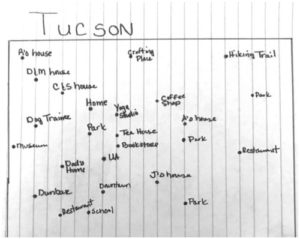 TUCSON
R's house
Crafting
Place
Hiking Trail
D&M house
C&S house
Park
Home
Yoga
Studio
Coffee
Shop
Dog Trainer
Park
A's house
Tea House
Park
Museum
Bookstore
Restaurant
Dad's
Home
UA
Dunbar
Downtown
J's house
Restaurant
School
Park